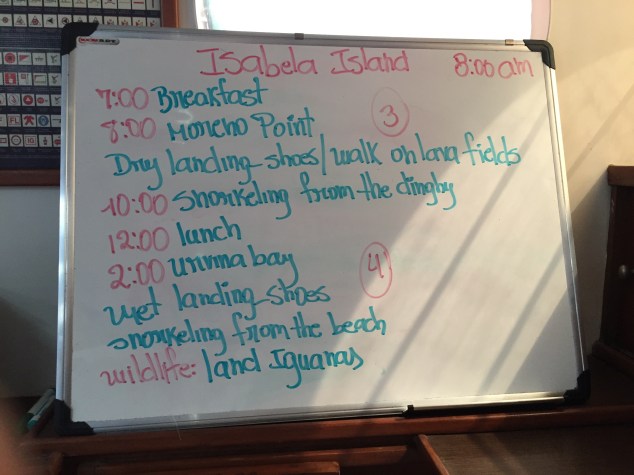 Isabela Island 8:00 am
7:00 Breakfast
8:00 Moreno Point 3
Dry landing shoes/walk on lava fields
10:00 snorkeling from the dinghy
12:00 lunch
2:00 urvina bay 4
wet landing shoes
snorkeling from the beach
wildlife: land Iguanas